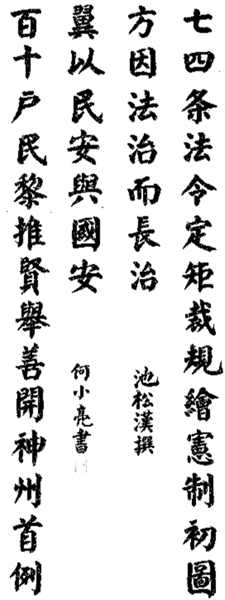 七四条法令定矩裁規繪憲制初圖
方因法治而長治
池松漢撰
百十户民黎推賢舉善開神州首例
翼以民安與國安
何小亮書